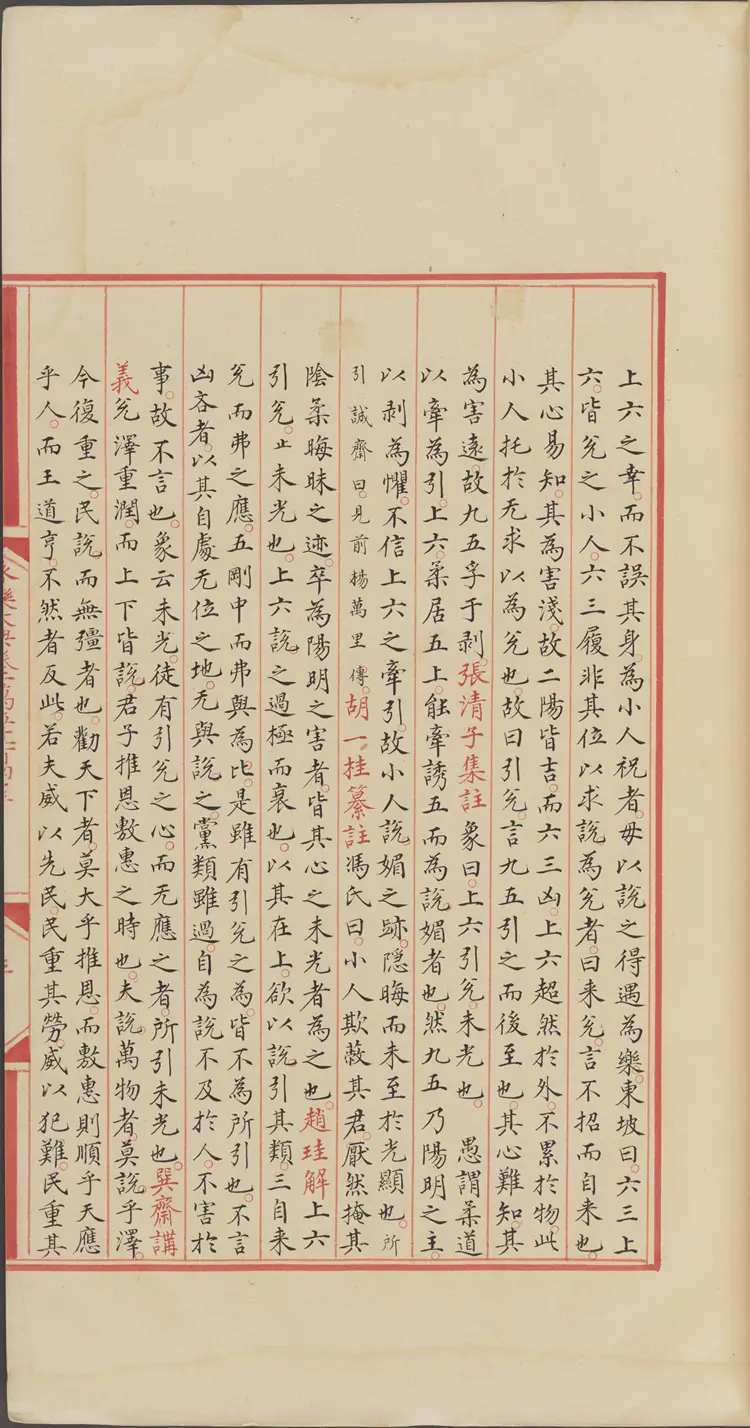 上六之幸而不誤其身為小人祝者毋以說之得遇為樂東坡曰六三上
六皆兊之小人六三履非其位以求說為兊者曰来兊言不招而自来也
其心易知其為害淺故二陽皆吉而六三凶上六超然於外不累於物此
小人托於无求以為兊也故曰引兊言九五引之而後至也其心難知其
為害遠故九五孚于剥張清子集註象曰上六引兊未光也 愚謂柔道
以牽為引上六柔居五上能牽誘五而為說媚者也然九五乃陽明之主
以剥為懼不信上六之牽引故小人說媚之跡隱晦而未至於光顯也所
引誠齋曰見前楊萬里傳胡一桂纂註馮氏曰小人欺蔽其君厭然掩其
陰柔晦昧之迹卒為陽明之害者皆其心之未光者為之也趙珪解上六
引兊止未光也上六說之過極而衰也以其在上欲以說引其類三自来
兊而弗之應五剛中而弗與為比是雖有引兊之為皆不為所引也不言
凶吝者以其自處无位之地无與說之黨類雖過自為說不及於人不害於
事故不言也象云未光徒有引兊之心而无應之者所引未光也巽齋講
義兊澤重潤而上下皆說君子推恩敷惠之時也夫說萬物者莫說乎澤
今復重之民說而無彊者也勸天下者莫大乎推恩而敷惠則順乎天應
乎人而王道亨不然者反此若夫威以先民民重其勞威以犯難民重其